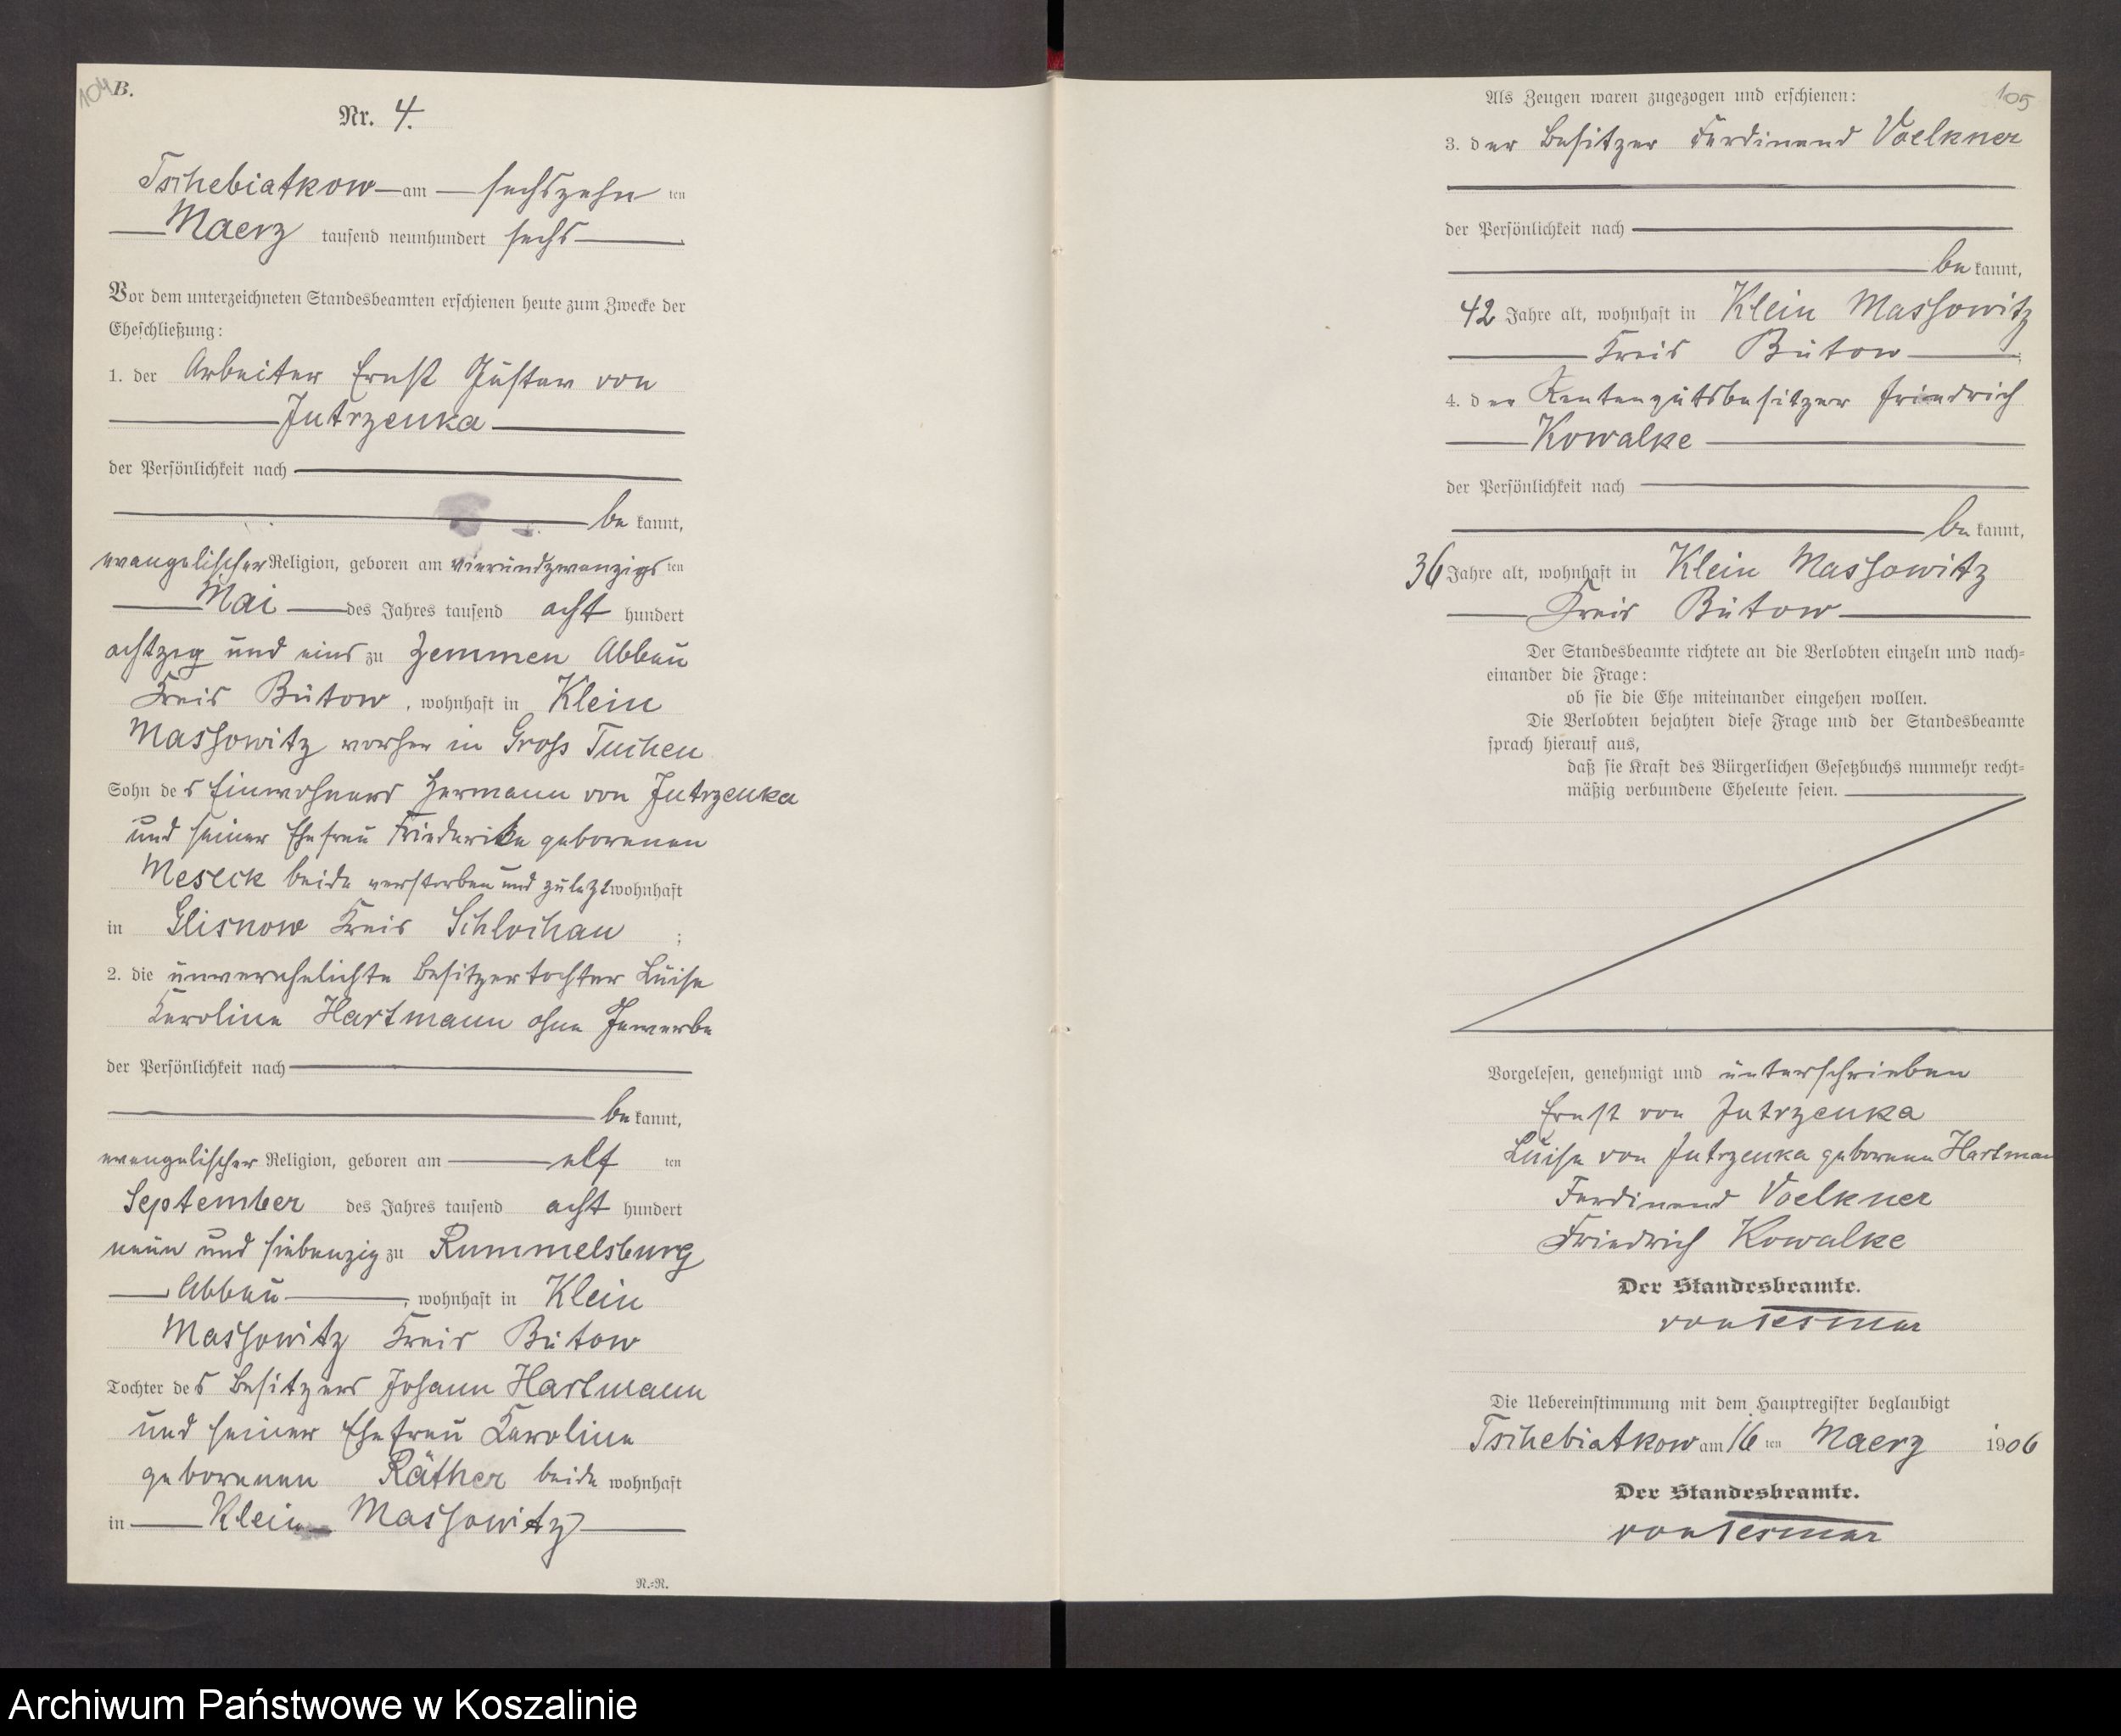 104
B.
Nr. 4.
Tschebiatkow am sechszehn ten
Maerz tausend neunhundert sechs
Vor dem unterzeichneten Standesbeamten erschienen heute zum Zwecke der
Eheschließung:
1. der Arbeiter Ernst Gustav von
Jutrzenka
der Persönlichkeit nach
be kannt,
evangelischer Religion, geboren am vierundzwanzigs ten
Mai des Jahres tausend acht hundert
achtzig und eins zu Zemmen Abbau
Kreis Bütow, wohnhaft in Klein
Massowitz vorher in Gross Tuchen
Sohn des Einwohners Hermann von Jutrzenka
und seiner Ehefrau Friederike geborenen
Meseck beide verstorben und zuletzt wohnhaft
in Glisnow Kreis Schlochau ;
2. die unverehelichte Besitzertochter Luise
Karoline Hartmann ohne Gewerbe
der Persönlichkeit nach
be kannt,
evangelischer Religion, geboren am elf ten
September des Jahres tausend acht hundert
neun und siebenzig zu Rummelsburg
Abbau, wohnhaft in Klein
Massowitz Kreis Bütow
Tochter des Besitzers Johann Hartmann
und seiner Ehefrau Karoline
geborenen Räther beide wohnhaft
in Klein Massowitz
N.=N.
105
Als Zeugen waren zugezogen und erschienen:
3. der Besitzer Ferdinand Voelkner
der Persönlichkeit nach
be kannt,
42 Jahre alt, wohnhaft in Klein Massowitz
Kreis Bütow;
4. der Rentengutsbesitzer Friedrich
Kowalke
der Persönlichkeit nach
be kannt,
36 Jahre alt, wohnhaft in Klein Massowitz
Kreis Bütow
Der Standesbeamte richtete an die Verlobten einzeln und nach=
einander die Frage:
ob sie die Ehe miteinander eingehen wollen.
Die Verlobten bejahten diese Frage und der Standesbeamte
sprach hierauf aus,
daß sie kraft des Bürgerlichen Gesetzbuchs nunmehr recht=
mäßig verbundene Eheleute seien.
Vorgelesen, genehmigt und unterschrieben
Ernst von Jutrzenka
Luise von Jutrzenka geborene Hartman
Ferdinand Voelkner
Friedrich Kowalke
Der Standesbeamte.
von Tesmar
Die Uebereinstimmung mit dem Hauptregister beglaubigt
Tschebiatkow am 16 ten Maerz 1906
Der Standesbeamte.
von Tesmar
Archiwum Państwowe w Koszalinie